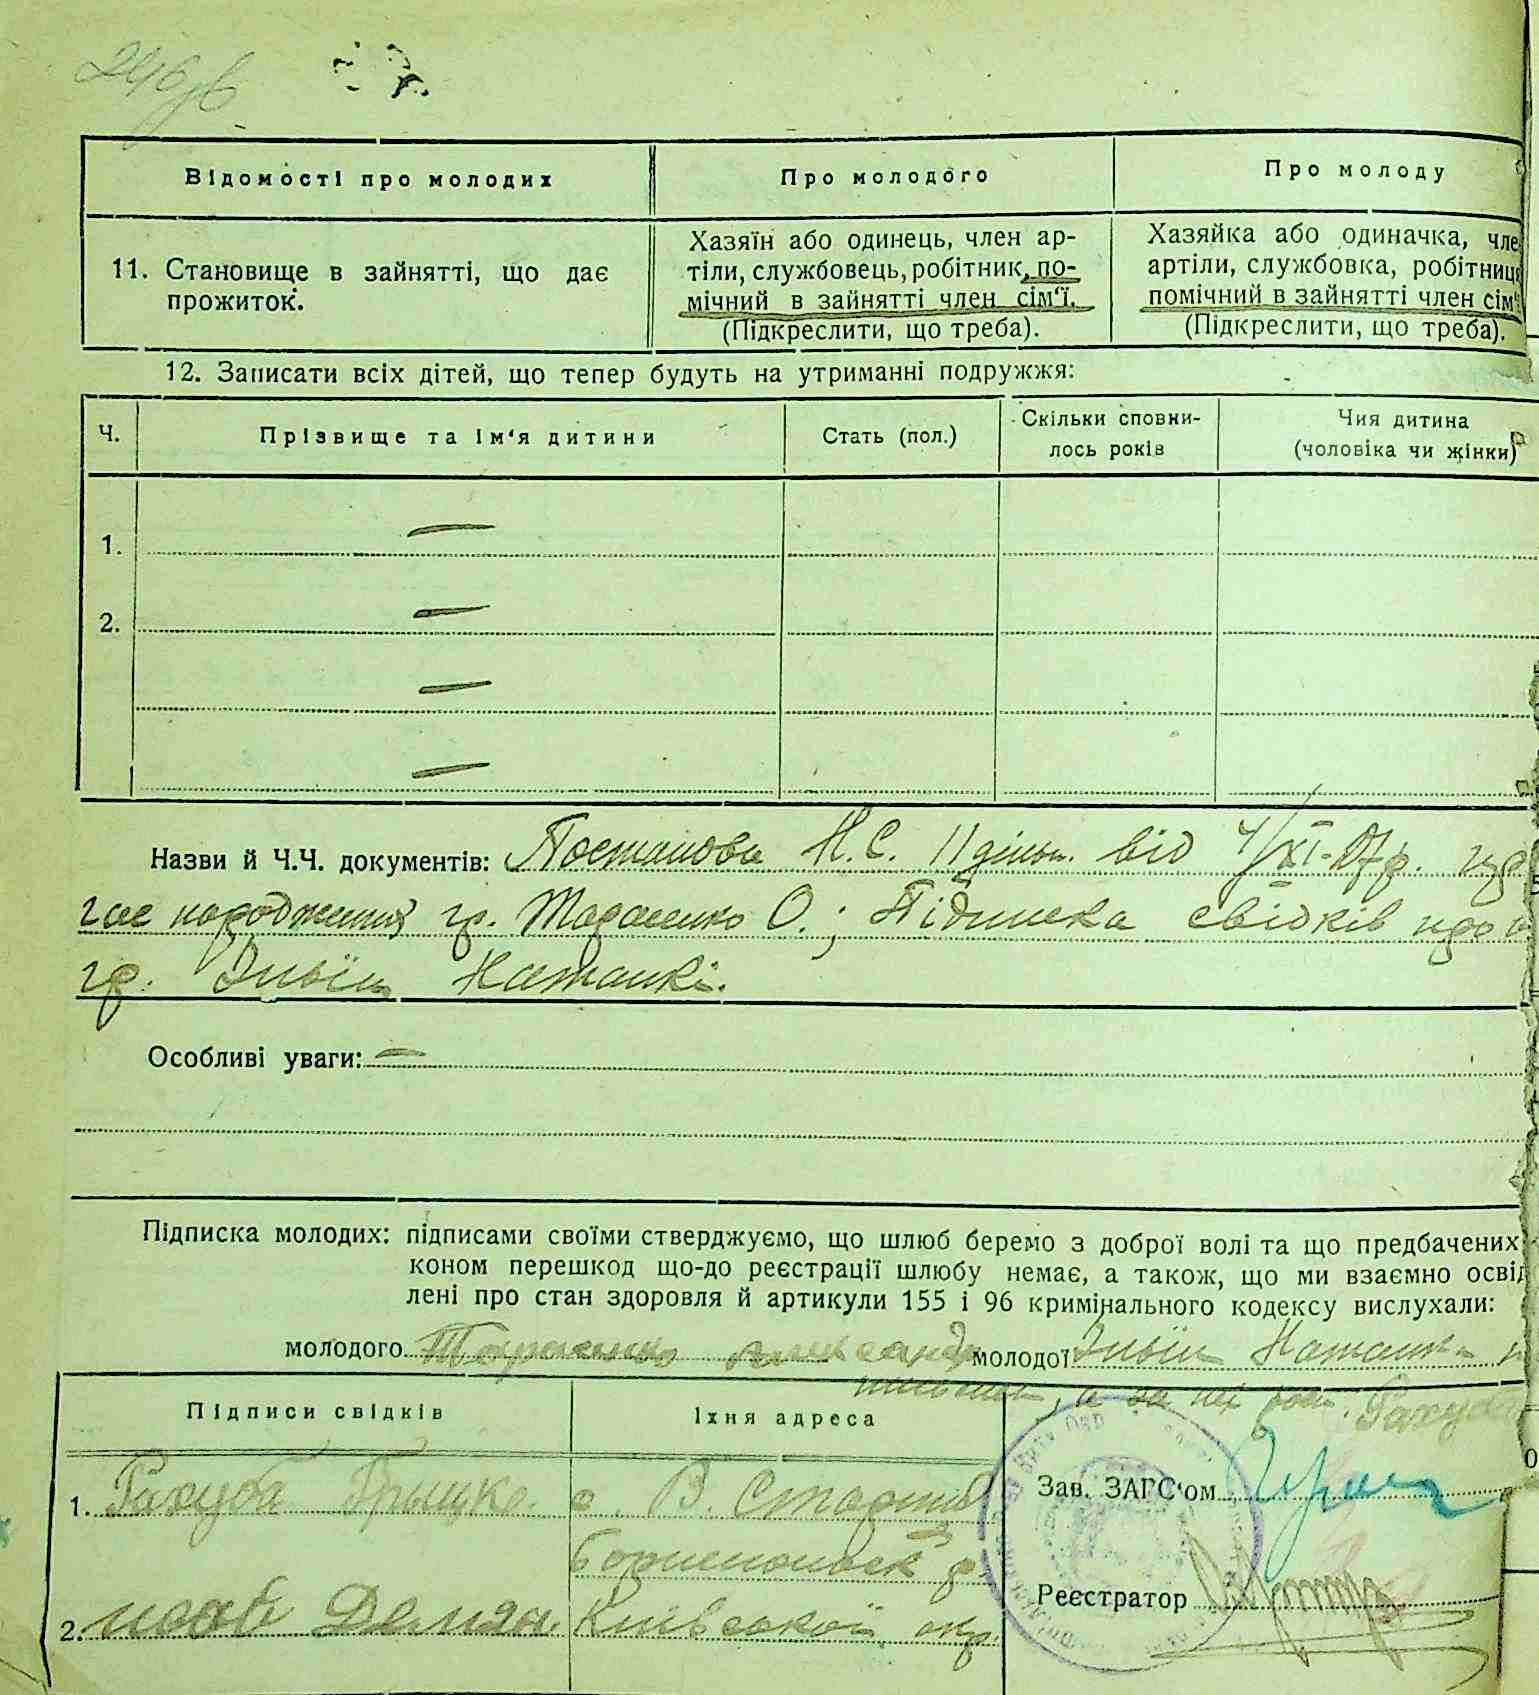 Відомості про молодих
Про молодого
Про молоду
11. Становище в зайнятті, що дає
прожиток.
Хазяїн або одинець, член ар-
тіли, службовець, робітник, по-
мічний в зайнятті член сім'ї.
(Підкреслити, що треба).
Хазяйка або одиначка, чле
артіли, службовка, робітниця
помічний в зайнятті член сім'
(Підкреслити, що треба).
12. Записати всіх дітей, що тепер будуть на утриманні подружжя:
Ч.
Прізвище та ім'я дитини
Стать (пол.)
Скільки сповни-
лось років
Чия дитина
(чоловіка чи жінки)
1. —
2. —
—
—
Назви й Ч.Ч. документів: Постанова Н.С. 11 дільн. від 4/XI-27р. про
народження гр. Тарасенко О.; Підписка свідків про
гр.
Особливі уваги: —
Підписка молодих: підписами своїми стверджуємо, що шлюб беремо з доброї волі та що предбачених
коном перешкод що-до реєстрації шлюбу немає, а також, що ми взаємно освід
лені про стан здоровля й артикули 155 і 96 кримінального кодексу вислухали:
молодого Тарасенко молодої
а за неї Рахуба
Підписи свідків
Їхня адреса
1. Рахуба Грицко. с. В Старе
Бориспольск р.
2. Исаб Демян. Київської окр.
Зав. ЗАГС'ом
Реєстратор